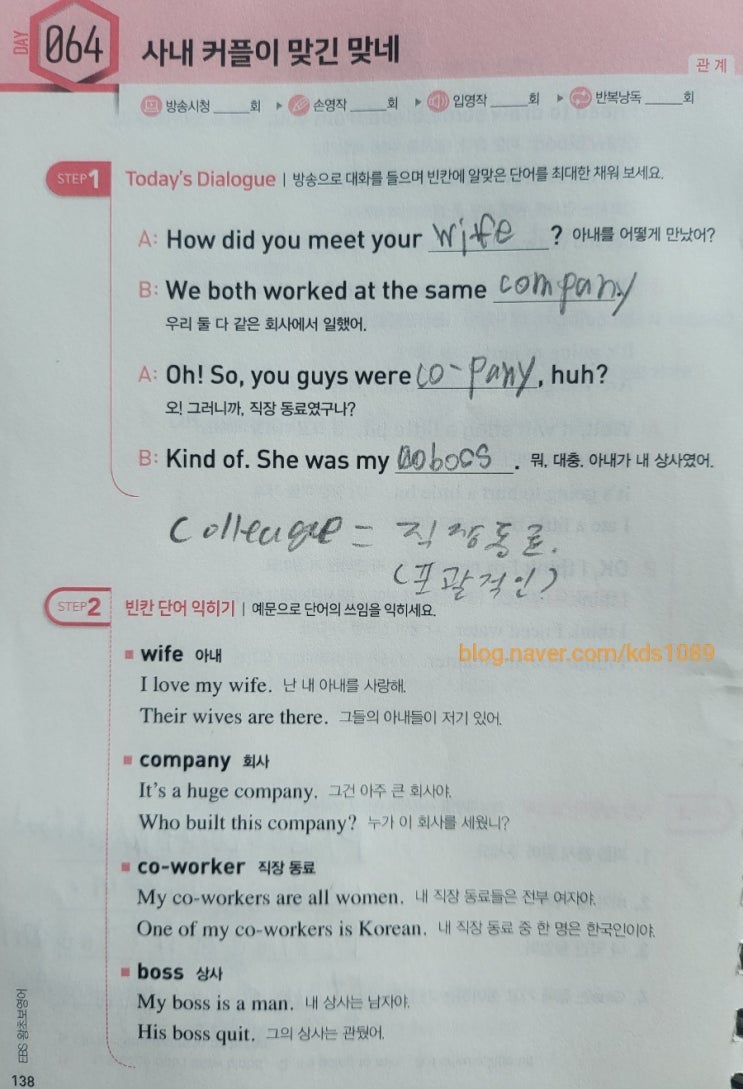 DAY 064 사내 커플이 맞긴 맞네
관계
방송시청 ____회 ▶ 손영작 ____회 ▶ 입영작 ____회 ▶ 반복낭독 ____회
STEP1 Today's Dialogue | 방송으로 대화를 들으며 빈칸에 알맞은 단어를 최대한 채워 보세요.
A: How did you meet your wife ? 아내를 어떻게 만났어?
B: We both worked at the same company
우리 둘 다 같은 회사에서 일했어.
A: Oh! So, you guys were co-pany, huh?
오! 그러니까, 직장 동료였구나?
B: Kind of. She was my . 뭐, 대충. 아내가 내 상사였어.
colleague = 직장동료.
(포괄적인)
STEP2 빈칸 단어 익히기 | 예문으로 단어의 쓰임을 익히세요.
wife 아내
blog.naver.com/kds1089
I love my wife. 난 내 아내를 사랑해.
Their wives are there. 그들의 아내들이 저기 있어.
company 회사
It's a huge company. 그건 아주 큰 회사야.
Who built this company? 누가 이 회사를 세웠니?
co-worker 직장 동료
My co-workers are all women. 내 직장 동료들은 전부 여자야.
One of my co-workers is Korean. 내 직장 동료 중 한 명은 한국인이야.
boss 상사
My boss is a man. 내 상사는 남자야.
His boss quit. 그의 상사는 관뒀어.
EBS 왕초보영어
138